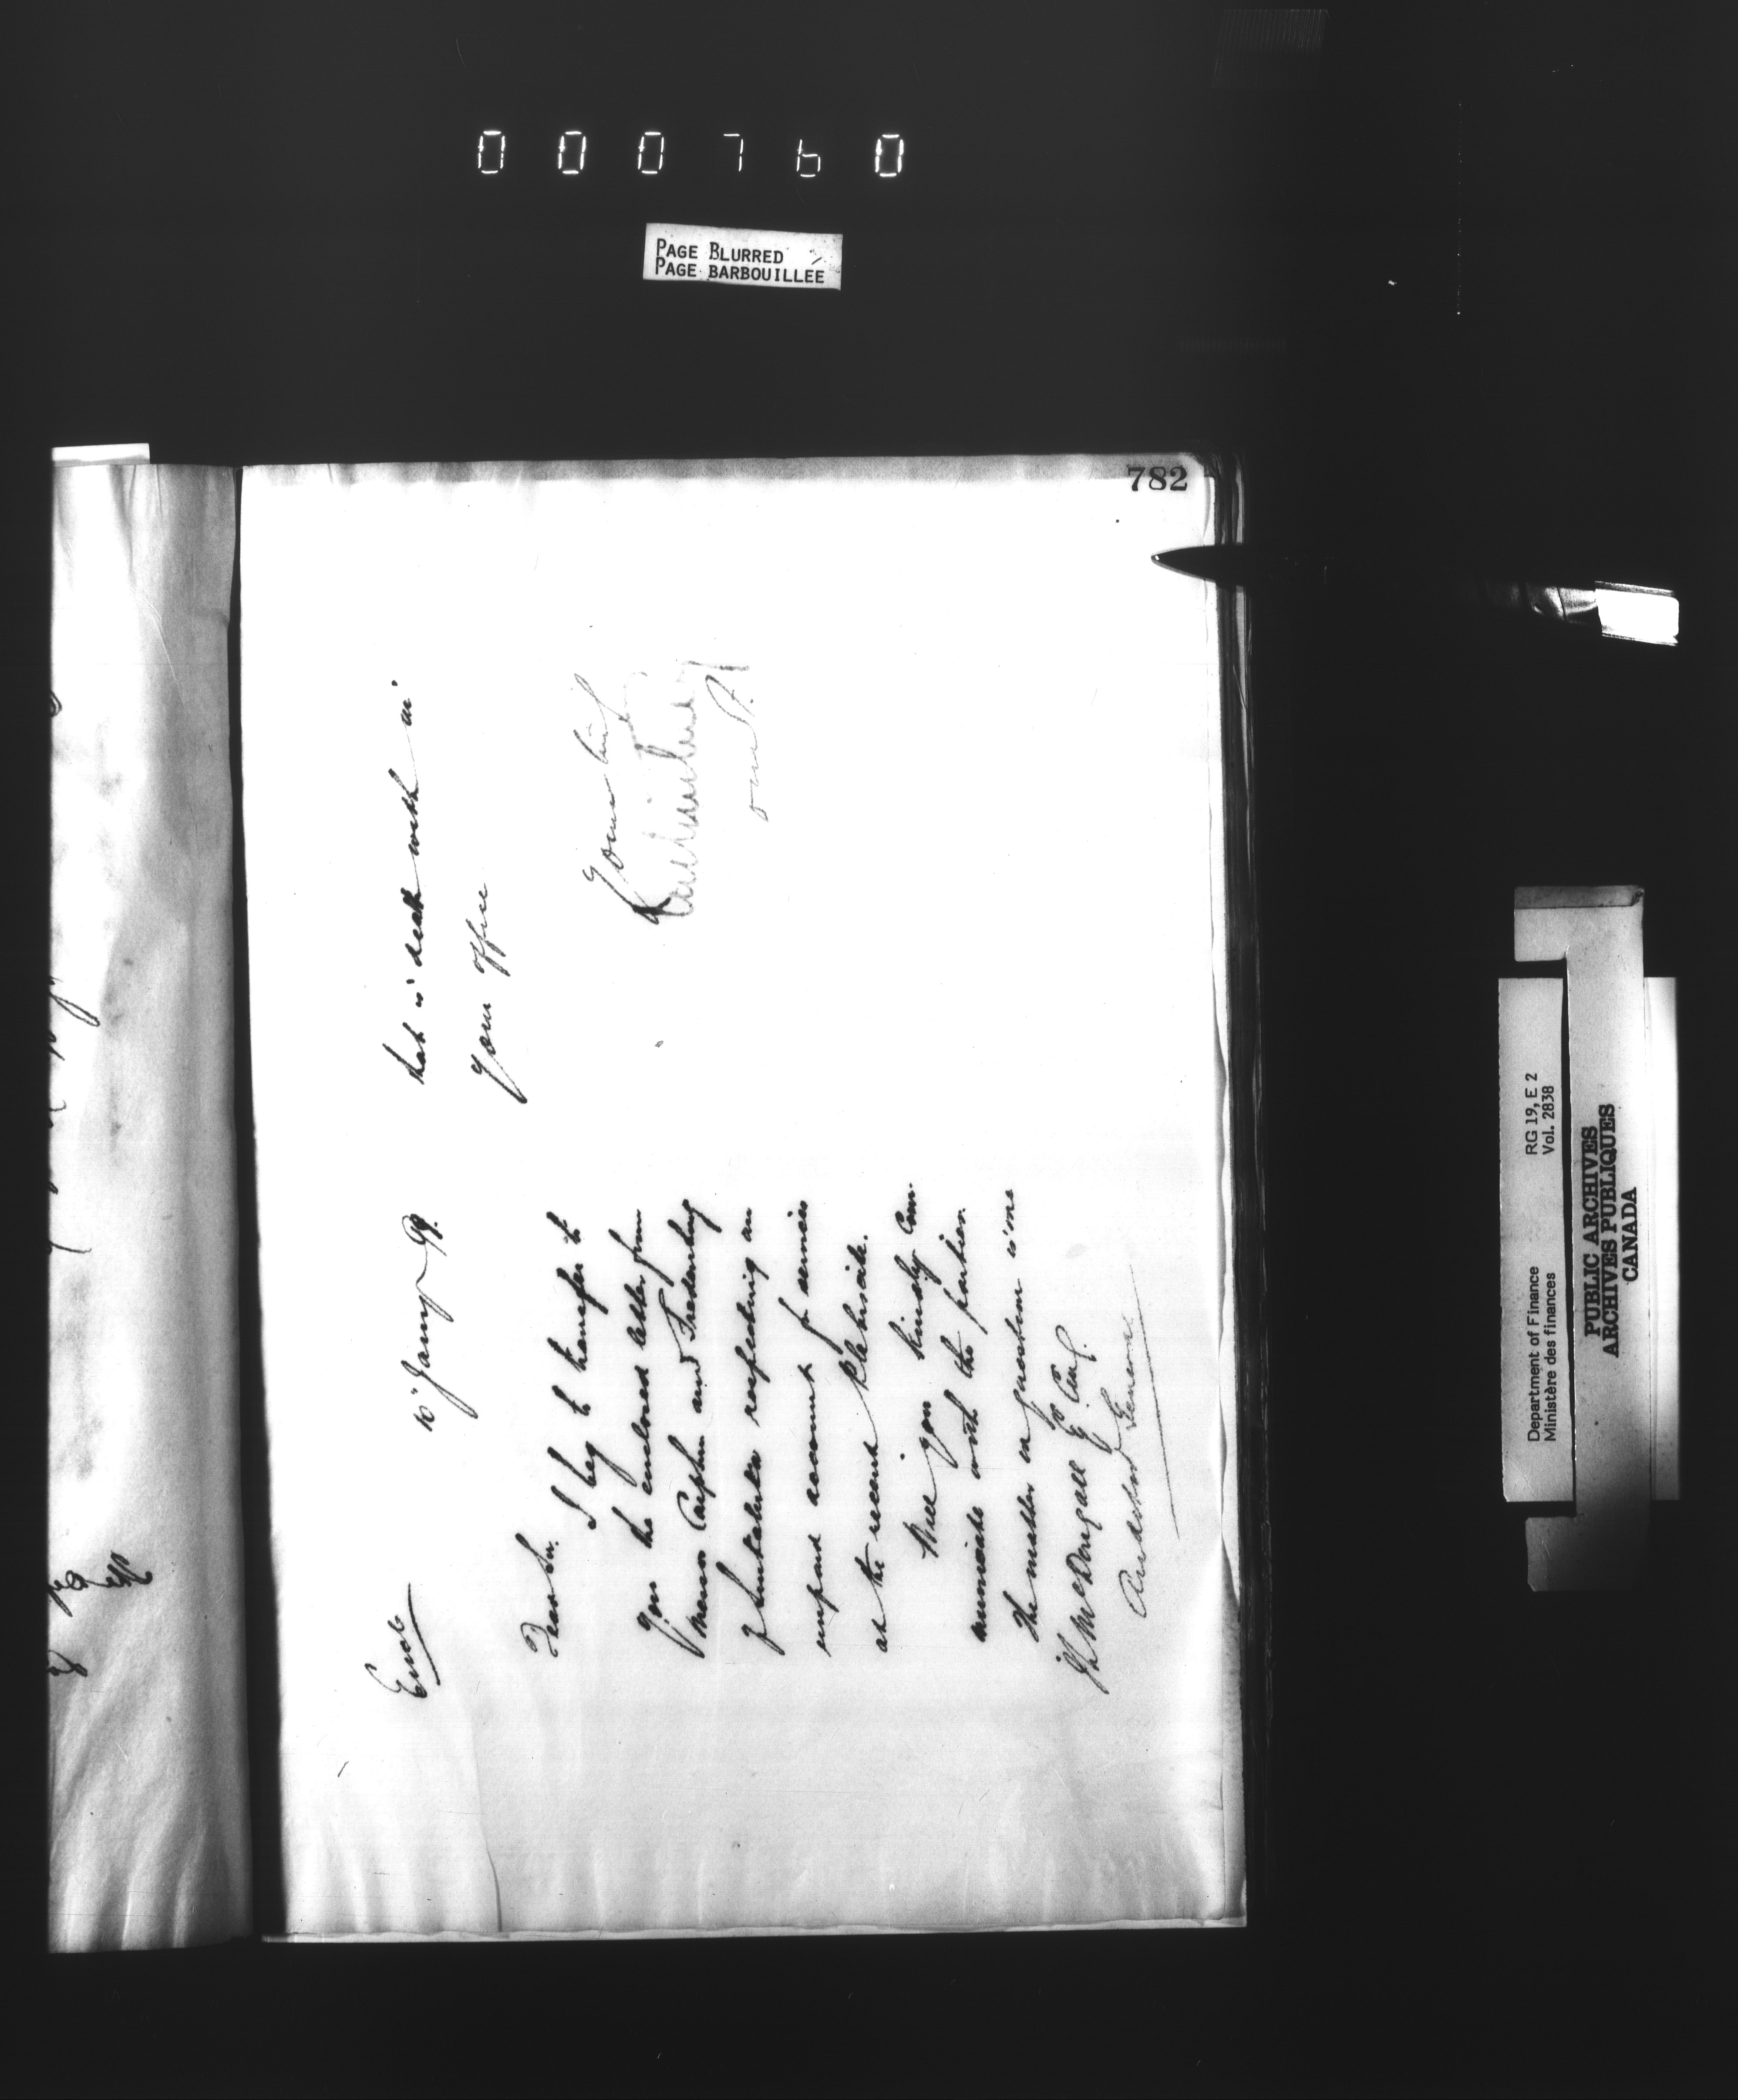 000760
PAGE BLURRED
PAGE BARBOUILLEE
782
Encl
10" Jany 99.
Dear Sir.
I beg to transfer to
you the enclosed letter from
Messrs and
of respecting an
unpaid account for services
at the recent Plebiscite.
Will you kindly Com-
municate with the parties.
The matter in question is one
J L McDougall Esq C.M.G.
Auditor General
that is dealt with in
your office
Yours truly
Department of Finance
Ministère des finances
RG 19, E 2
Vol. 2838
PUBLIC ARCHIVES
ARCHIVES PUBLIQUES
CANADA